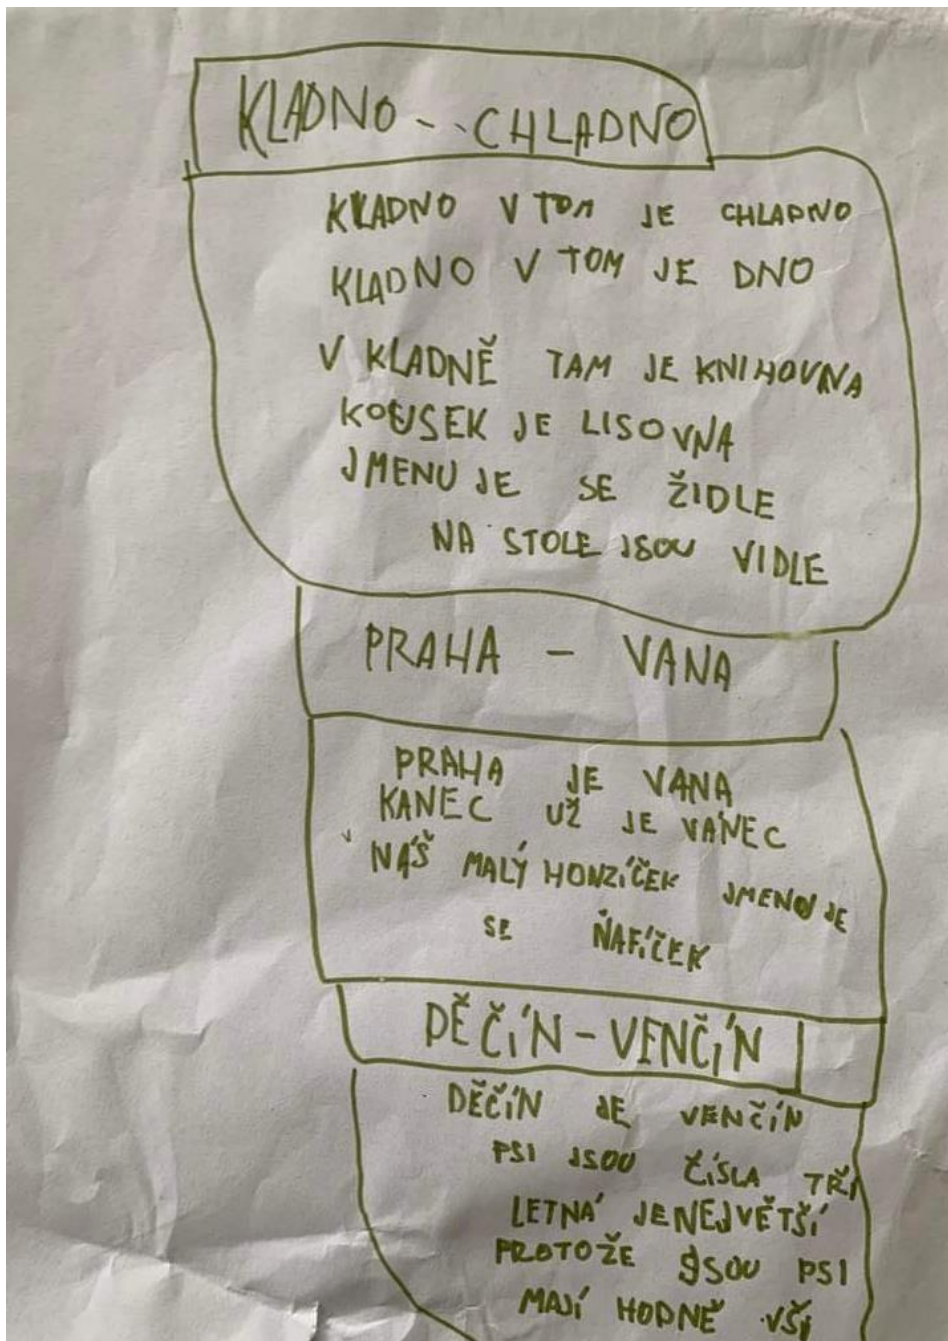 KLADNO -- CHLADNO
KLADNO V TOM JE CHLADNO
KLADNO V TOM JE DNO
V KLADNĚ TAM JE KNIHOVNA
KOUSEK JE LISOVNA
JMENUJE SE ŽIDLE
NA STOLE JSOU VIDLE
PRAHA - VANA
PRAHA JE VANA
KANEC UŽ JE VANEC
NÁŠ MALÝ HONZÍČEK JMENUJE
SE ŇAFÍČEK
DĚČÍN - VENČÍN
DĚČÍN JE VENČÍN
PSI JSOU ČÍSLA TŘI
LETNÁ JE NEJVĚTŠÍ
PROTOŽE JSOU PSI
MAJÍ HODNĚ VŠÍ